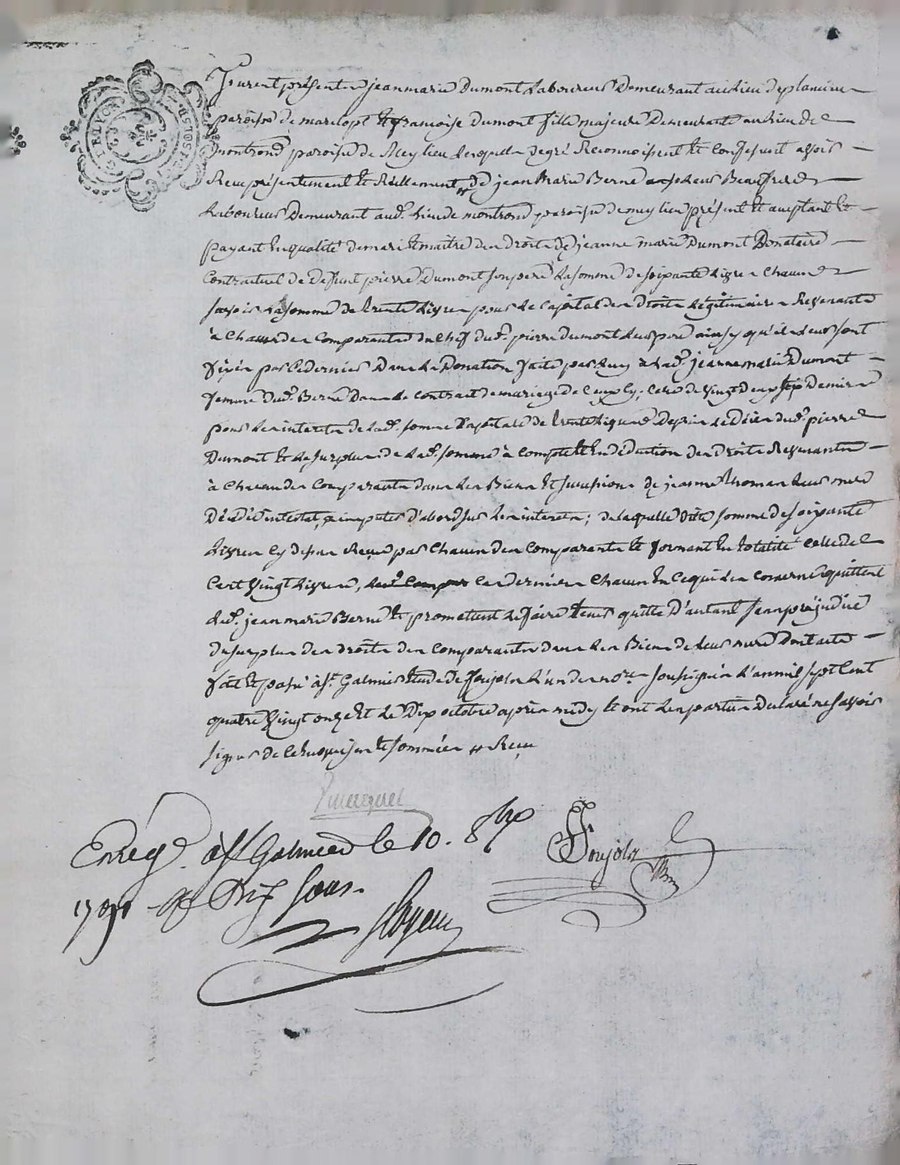 furent présents jeanmarie Dumont Laboureur Demeurant au lieu de
paroisse de marclopt et francoise Dumont fille majeure Demeurante au lieu de
montrond paroisse de Meylieu Lesquels de gré Reconnoissent et Confessent avoir
Recu présentement et Réellement de jean Marie Berne Leur Beaufrere
Laboureur Demeurant aud. lieu de montrond paroisse de meylieu présent et acceptant et
payant En qualité de mari et maître des Droits de jeanne marie Dumont Donataire
Contractuel de Deffunt pierre Dumont son pere La somme de soixante Livres Chacun
savoir La somme de trente Livres pour le Capital des Droits Légitimaires Revenants
à Chacun des Comparants du Chef dud. pierre Dumont Leur pere ainsy qu'ils leur sont
fixés par Ce dernier Dans la Donation faite par Luy à lad. jeanne marie Dumont
femme dud. Berne Dans le Contract de mariage de Ceux Cy; Celle de Vingt Deux
pour Les interets de lad. somme Capitale de trente Livres Depuis le Décès dud. pierre
Dumont et le surplus de lad. somme à Compte et En déduction des Droits Revenants
à Chacun des Comparants dans les Biens et succession de jeanne thomas leur mere
Décédée intestat, à imputer D'abord sur les interets; de laquelle ditte somme de soixante
Livres Cy dessus Reçue par Chacun des Comparants et formant En totalité Celle de
Cent Vingt Livres, Ces derniers Chacun En Ce qui les Concerne quittent
led. jean marie Berne et promettent le faire tenir quitte D'autant sans préjudice
du surplus des Droits des Comparants dans les Biens de leur mere Dont acte
fait et passé à St. Galmier Etude de Soujolz L'un des nores. soussignés L'an mil sept Cent
quatre Vingt onze et le Dix octobre après midy et ont les parties Declaré ne savoir
signer de Ce Enquises et sommées
Enrég. à St Galmier le 10. 8bre
1791 Dix sous.
Soujolz